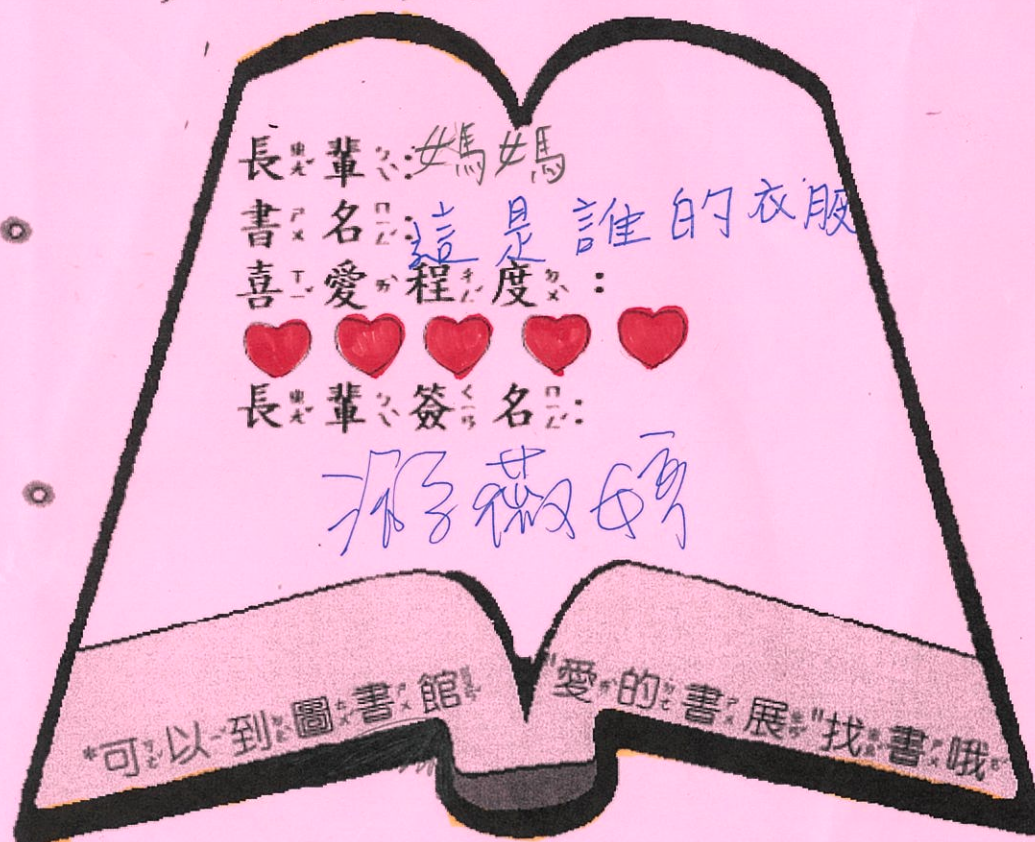 長輩：媽媽
書名：這是誰的衣服
喜愛程度：
長輩簽名：
游薇婷
*可以到圖書館"愛的書展"找書哦